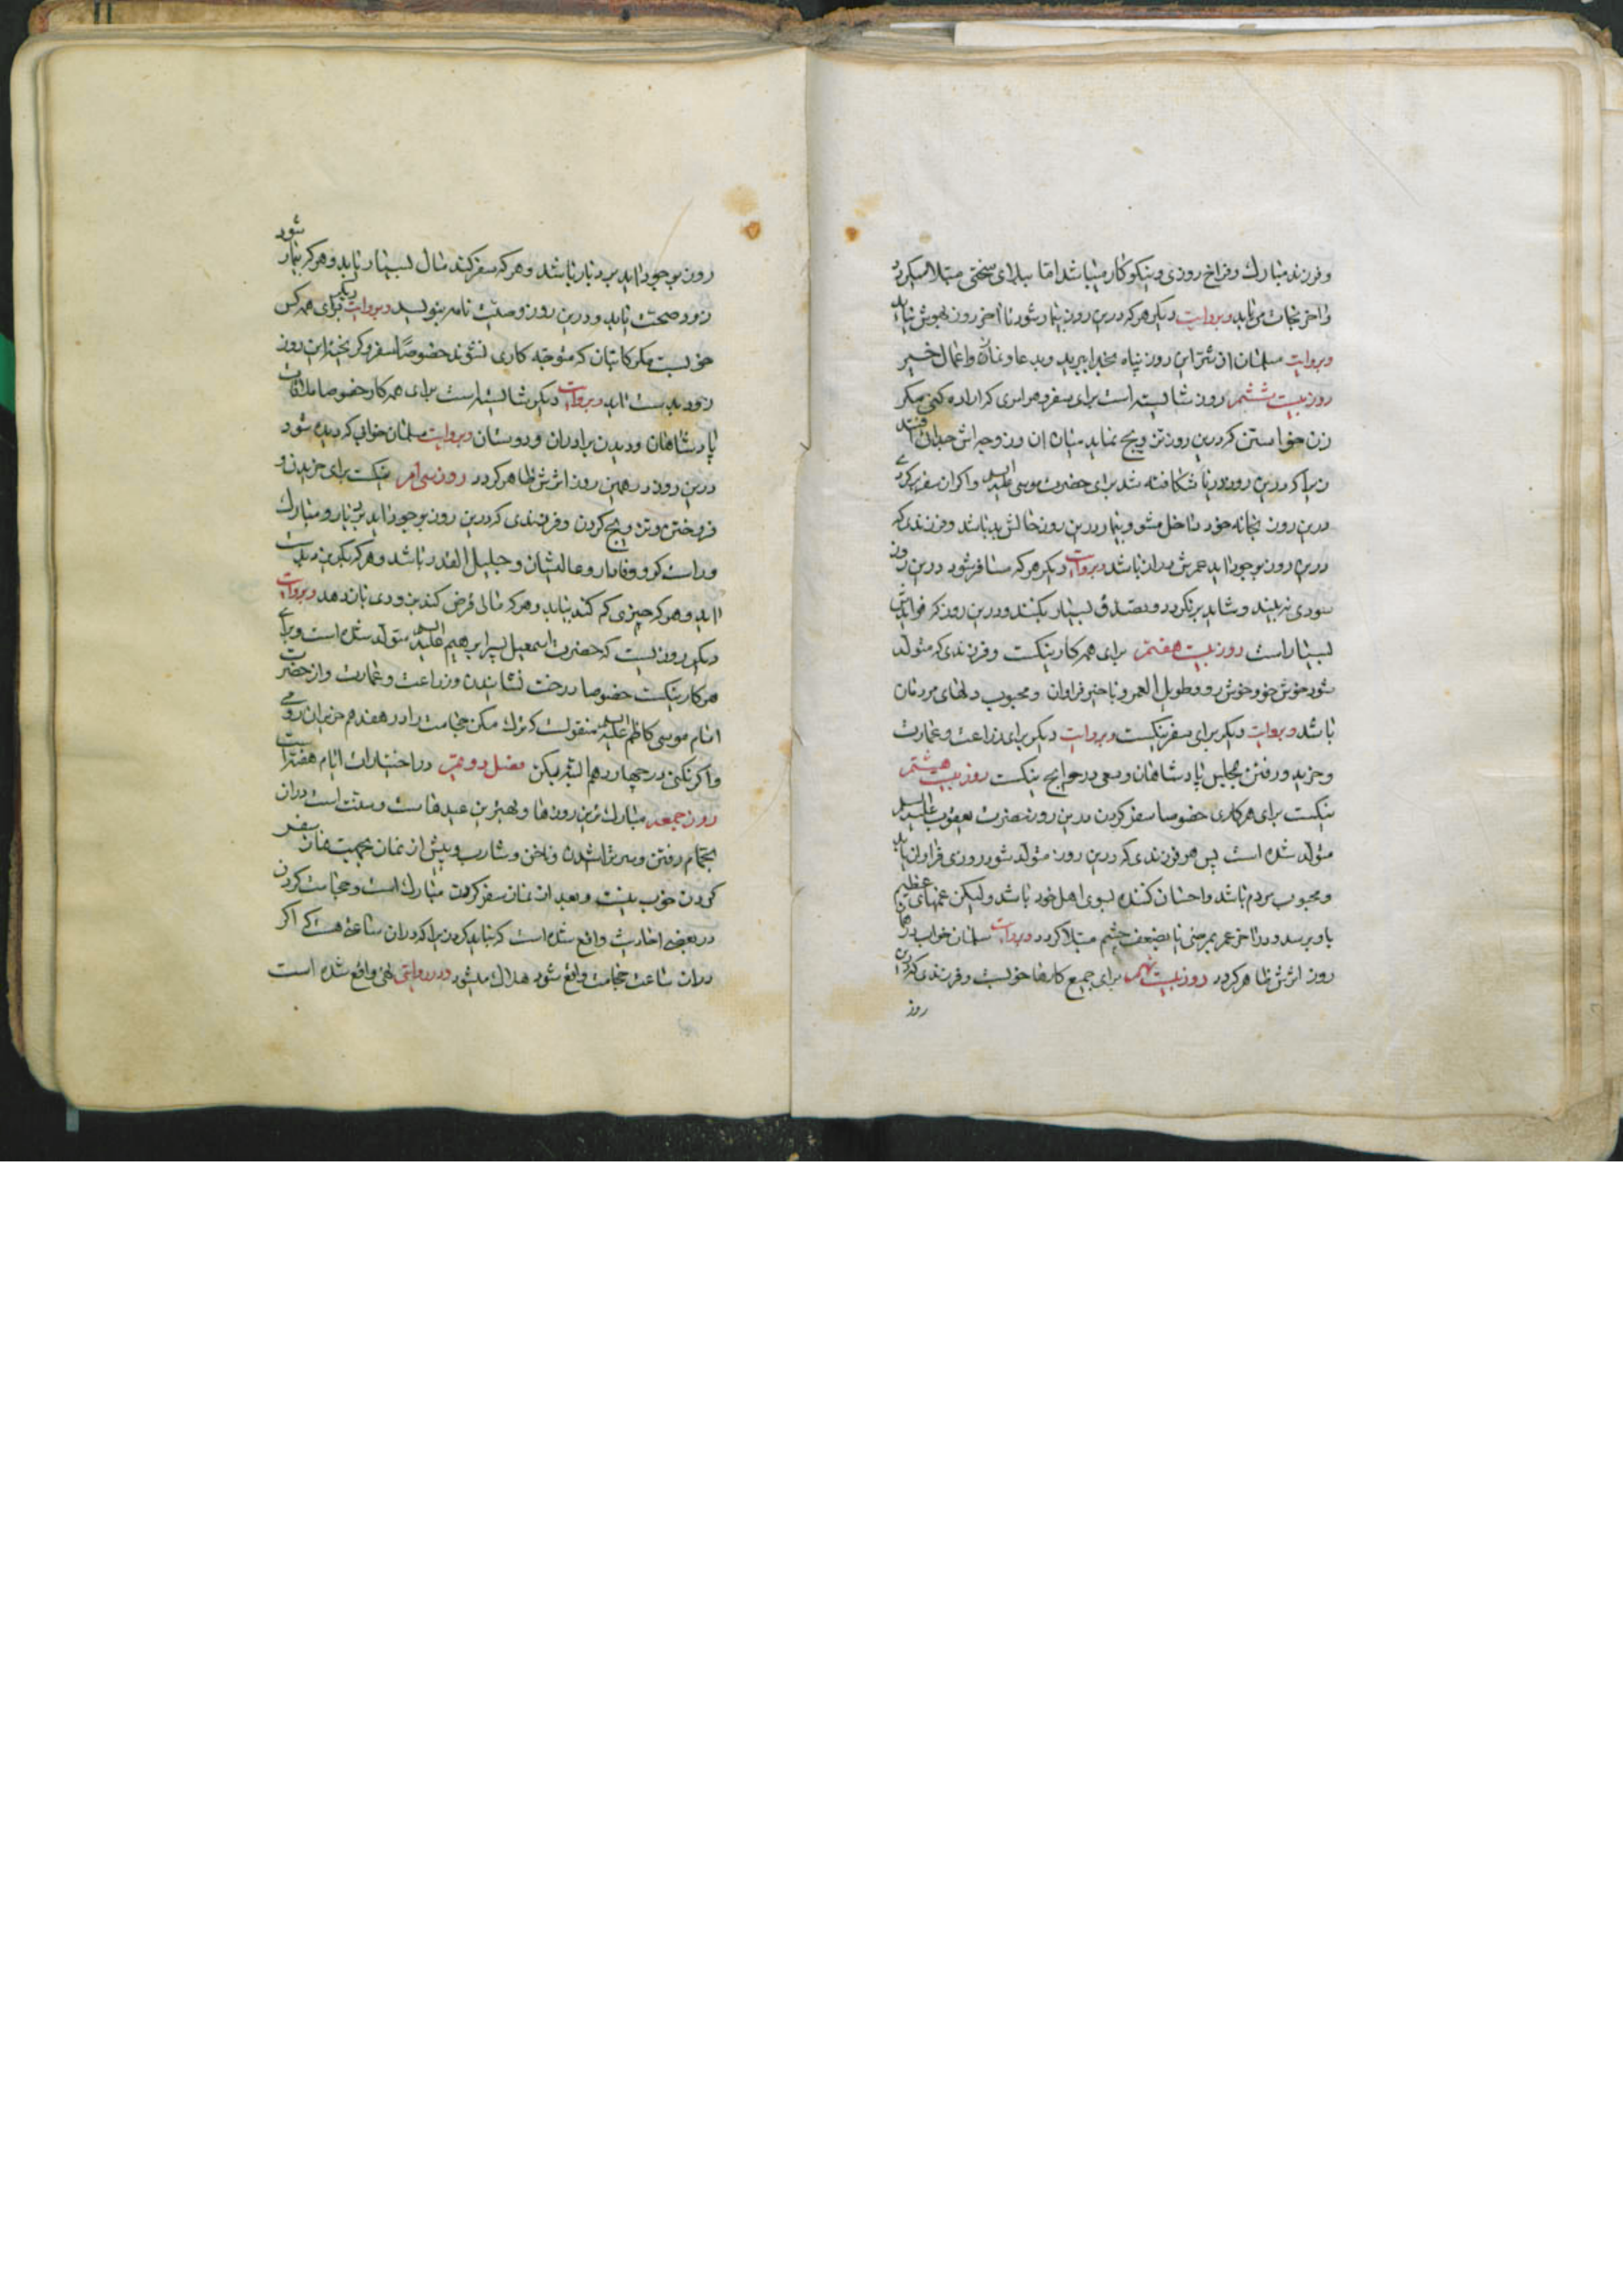 و فرزند مبارک و فراخ روزی و نیکو کار میباشد اما ببلای سختی مبتلا میگردد
و اخر نجات می یابد و بروایت دیگر هر که درین روز بیمار شود تا اخر روز بهوش نیاید
و بروایت سلمان از شر این روز پناه بخدا ببرید و بدعا و نماز و اعمال خیر
روز بیست ششم روز شایسته است برای سفر و هر امری که اراده کنی مگر
زن خواستن که درین روز تزویج نماید میان ان و زوجه اش جدائی افتد
زیرا که درین روز دریا شکافته شد برای حضرت موسی علیه السلم و اگر از سفر برگردی
درین روز بخانه خود داخل مشو و بیمار درین روز حالش بد باشد و فرزندی که
درین روز بوجود اید عمرش دراز باشد و بروایت دیگر هر که مسافر شود درین روز
سودی نه بیند و شاید برنگردد و تصدق بسیار بکنند و درین روز که فوایدش
بسیار است روز بیست هفتم برای همه کار نیکست و فرزندی که متولد
شود خوش خو و خوش رو و طویل العمر و با خیر فراوان و محبوب دلهای مردمان
باشد و بروایت دیگر برای سفر نیکست و بروایت دیگر برای زراعت و عمارت
و خرید و رفتن بمجلس پادشاهان و سعی در حوایج نیکست روز بیست هشتم
نیکست برای هر کاری خصوصا سفر کردن درین روز حضرت یعقوب علیه السلم
متولد شده است پس هر فرزندی که درین روز متولد شود روزی فراوان یابد
و محبوب مردم باشد و احسان کننده بسوی اهل خود باشد ولیکن غمهای عظیم
باو برسد و در اخر عمر بمرضی یا بضعف چشم مبتلا گردد و بروایت سلمان خواب در همان
روز اثرش ظاهر گردد روز بیست نهم برای جمیع کارها خوبست و فرزندی که درین
روز
روز بوجود اید بردبار باشد و هر که سفر کند مال بسیار یابد و هر که بیمار شود
زود صحت یابد و درین روز وصیت نامه ننویسد و بروایت دیگر برای همه کس
خوبست مگر کاتبان که متوجه کاری نشوند خصوصا سفر و گریخته این روز
زود بدست اید و بروایت دیگر شایسته است برای همه کار خصوصا ملاقات
پادشاهان و دیدن برادران و دوستان و بروایت سلمان خوابی که دیده شود
درین روز در همین روز اثرش ظاهر گردد روز سی ام نیکست برای خریدن و
فروختن و تزویج کردن و فرزندی که درین روز بوجود اید بردبار و مبارک
و راست گو و وفادار و عالیشان و جلیل القدر باشد و هر که بگریزد بدست
اید و هر که چیزی گم کند بیابد و هر که مالی قرض کند بزودی باز دهد و بروایت
دیگر روزیست که حضرت اسمعیل پسر ابرهیم علیه السلم متولد شده است و برای
هر کار نیکست خصوصا درخت نشاندن و زراعت و عمارت و از حضرت
امام موسی کاظم علیه السلم منقولست که ترک مکن حجامت را در هفدهم حزیران رومی
و اگر نکنی در چهاردهم البته بکن فصل دوم در اختیارات ایام هفته است
روز جمعه مبارک ترین روزها و بهترین عیدهاست و سنت است دران
بحمام رفتن و سر تراشیدن و ناخن و شارب و پیش از نماز جهت نماز سفر
کردن خوب نیست و بعد از نماز سفر کردن مبارک است و حجامت کردن
در بعضی احادیث واقع شده است که نباید کرد زیرا که دران ساعتی هست که اگر
دران ساعت حجامت واقع شود هلاک میشود و در روایتی نهی واقع شده است